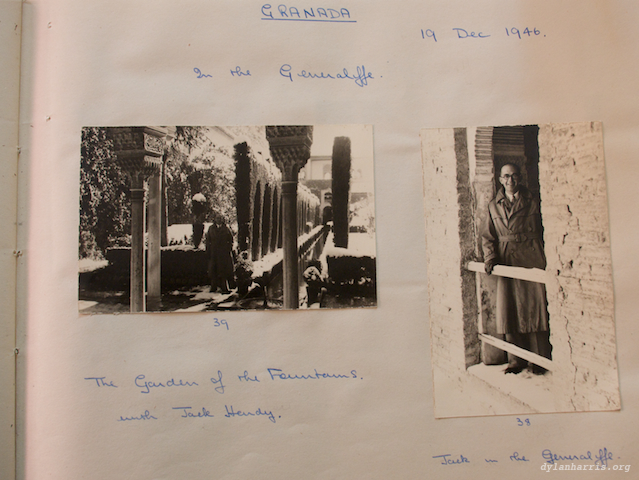 GRANADA
19 Dec 1946.
In the Generaliffe.
39
The Garden of the Fountains.
with Jack Hendy.
38
Jack in the Generaliffe.
dylanharris.org